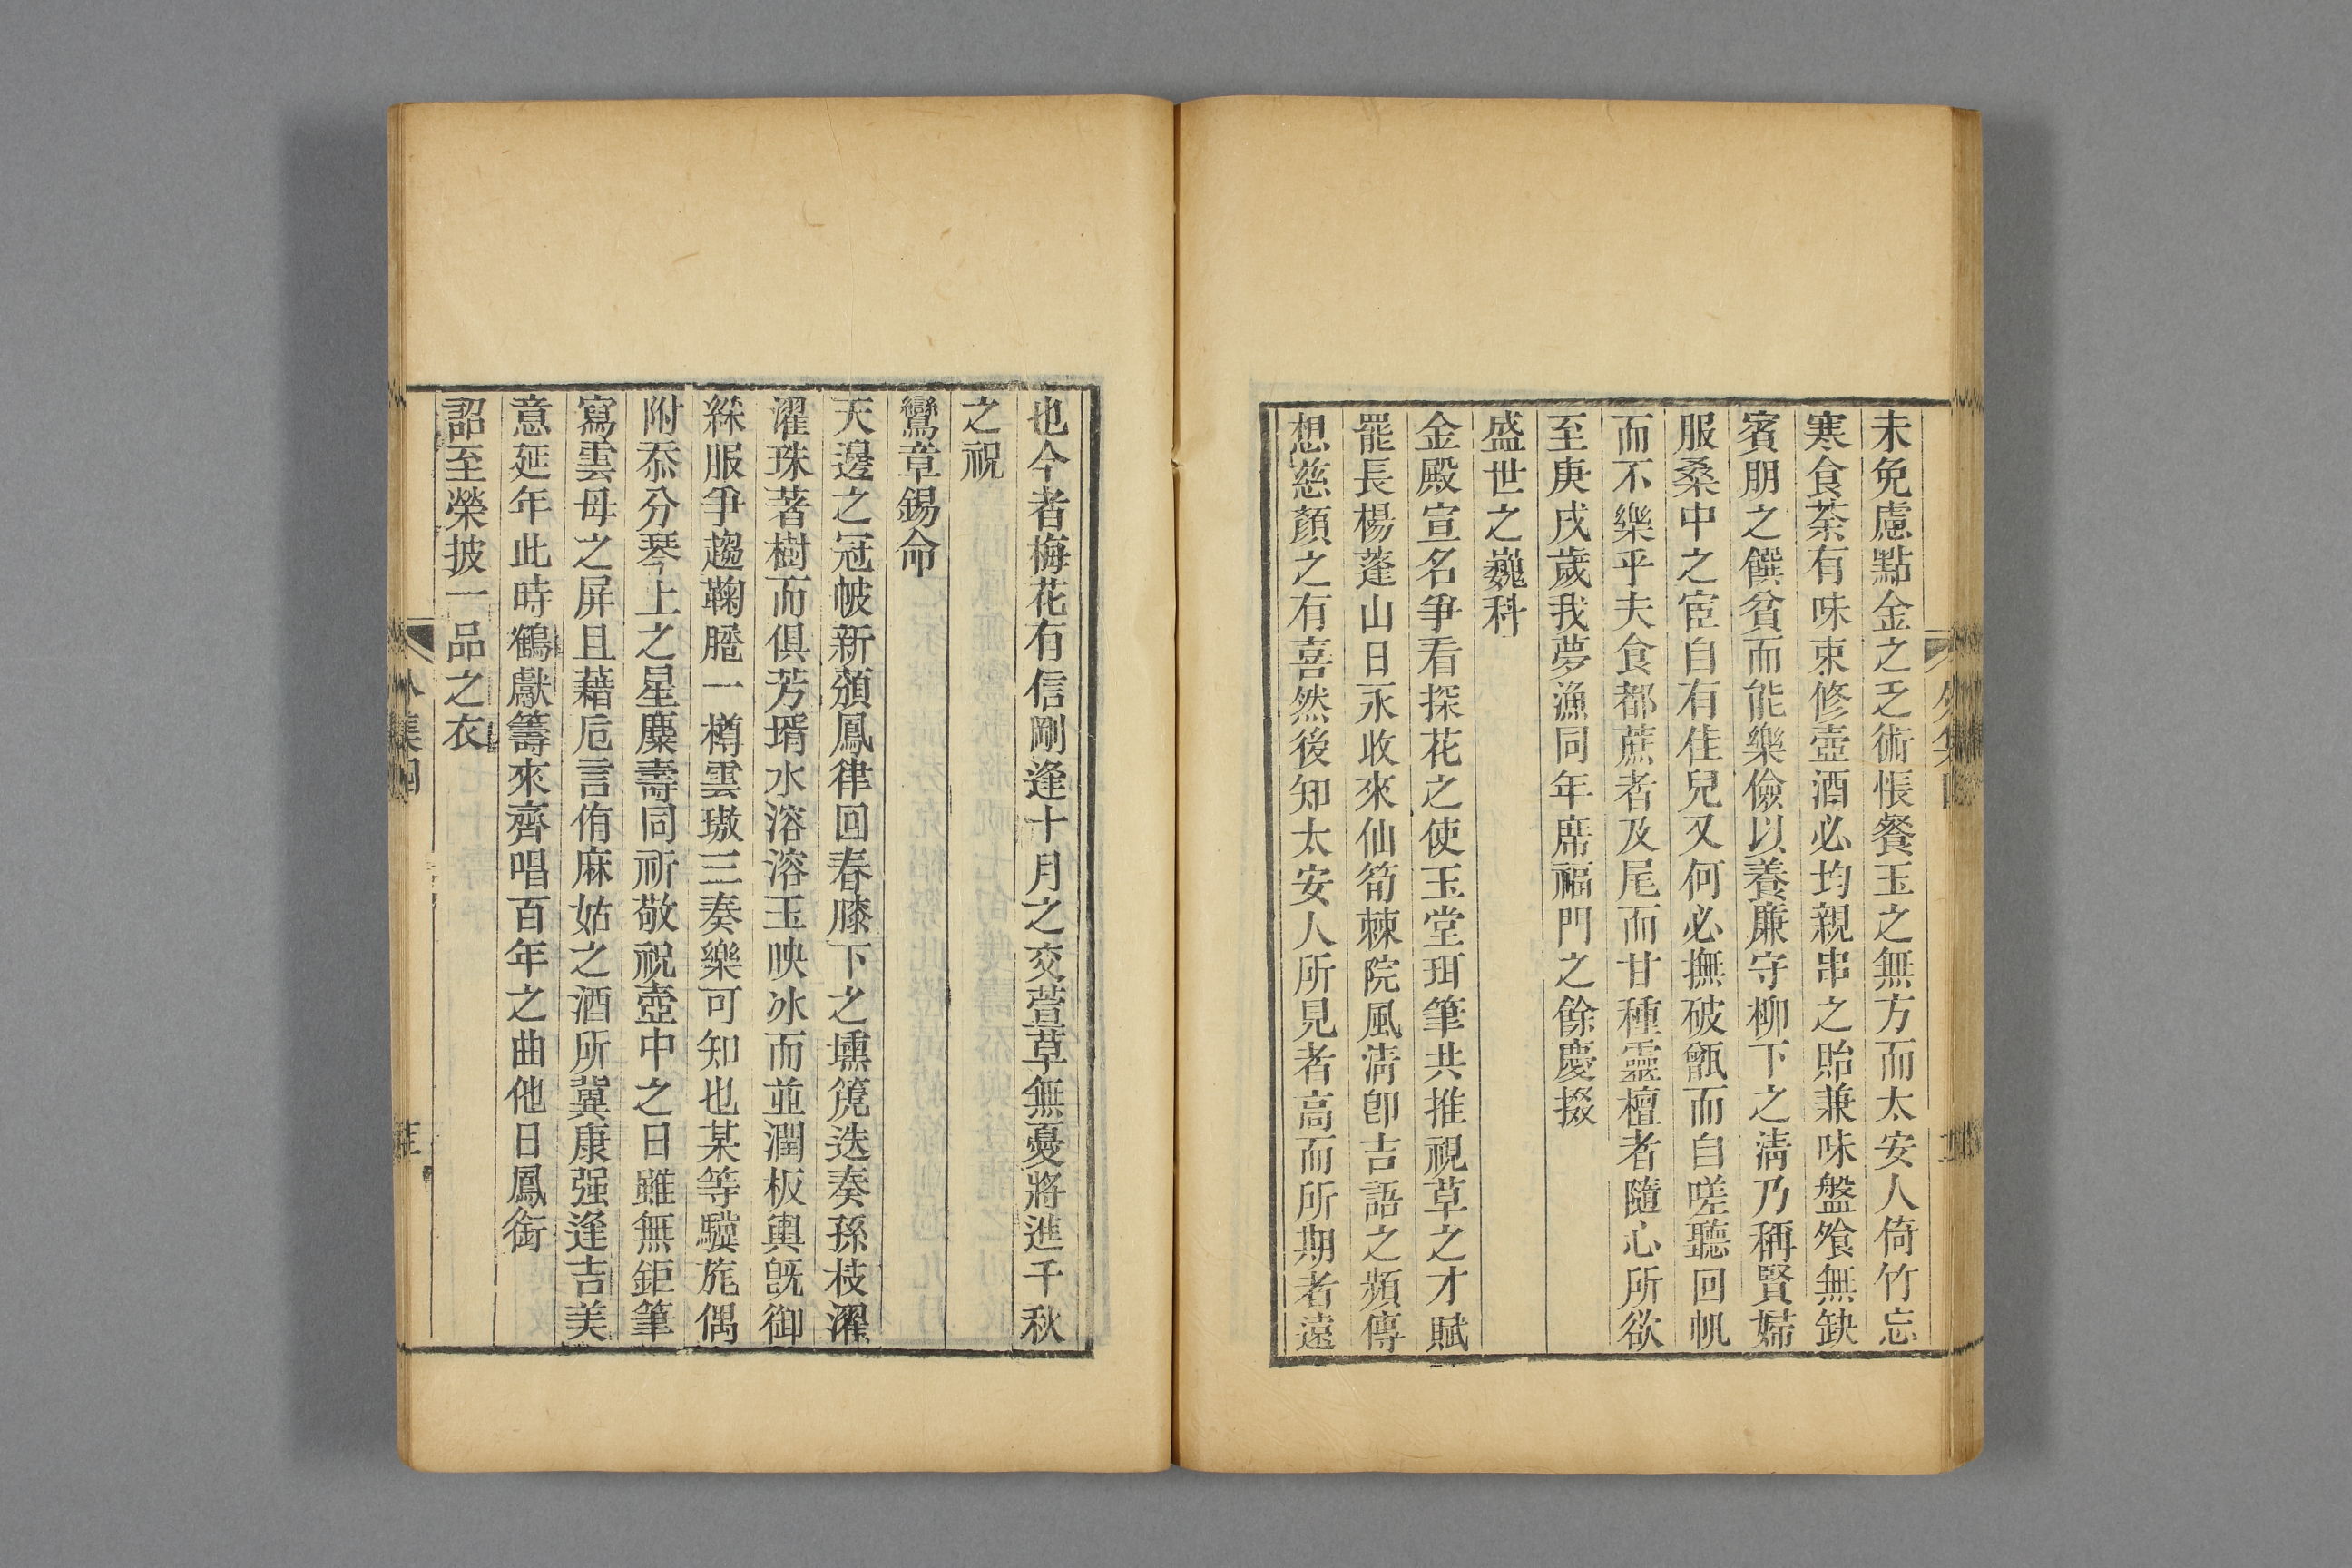 未免慮點金之乏術悵餐玉之無方而太安人倚竹忘
寒食荼有味束修壺酒必均親串之貽兼味盤飧無缺
賓朋之饌貧而能樂儉以養廉守柳下之淸乃稱賢婦
服桑中之宦自有佳兒又何必撫破甑而自嗟聽回帆
而不樂乎夫食都蔗者及尾而甘種靈檀者隨心所欲
至庚戌歲我夢漁同年席福門之餘慶掇
盛世之巍科
金殿宣名爭看探花之使玉堂珥筆共推視草之才賦
罷長楊蓬山日永收來仙筍棘院風淸卽吉語之頻傳
想慈顏之有喜然後知太安人所見者高而所期者遠
也今者梅花有信剛逢十月之交萱草無憂將進千秋
之祝
鸞章錫命
天邊之冠帔新頒鳳律回春膝下之壎篪迭奏孫枝濯
濯珠著樹而俱芳壻水溶溶玉映冰而並潤板輿旣御
綵服爭趨鞠𦜕一樽雲璈三奏樂可知也某等驥旄偶
附忝分琴上之星麋壽同祈敬祝壺中之日雖無鉅筆
寫雲母之屏且藉卮言侑麻姑之酒所冀康强逢吉美
意延年此時鶴獻籌來齊唱百年之曲他日鳳銜
詔至榮披一品之衣
外集四